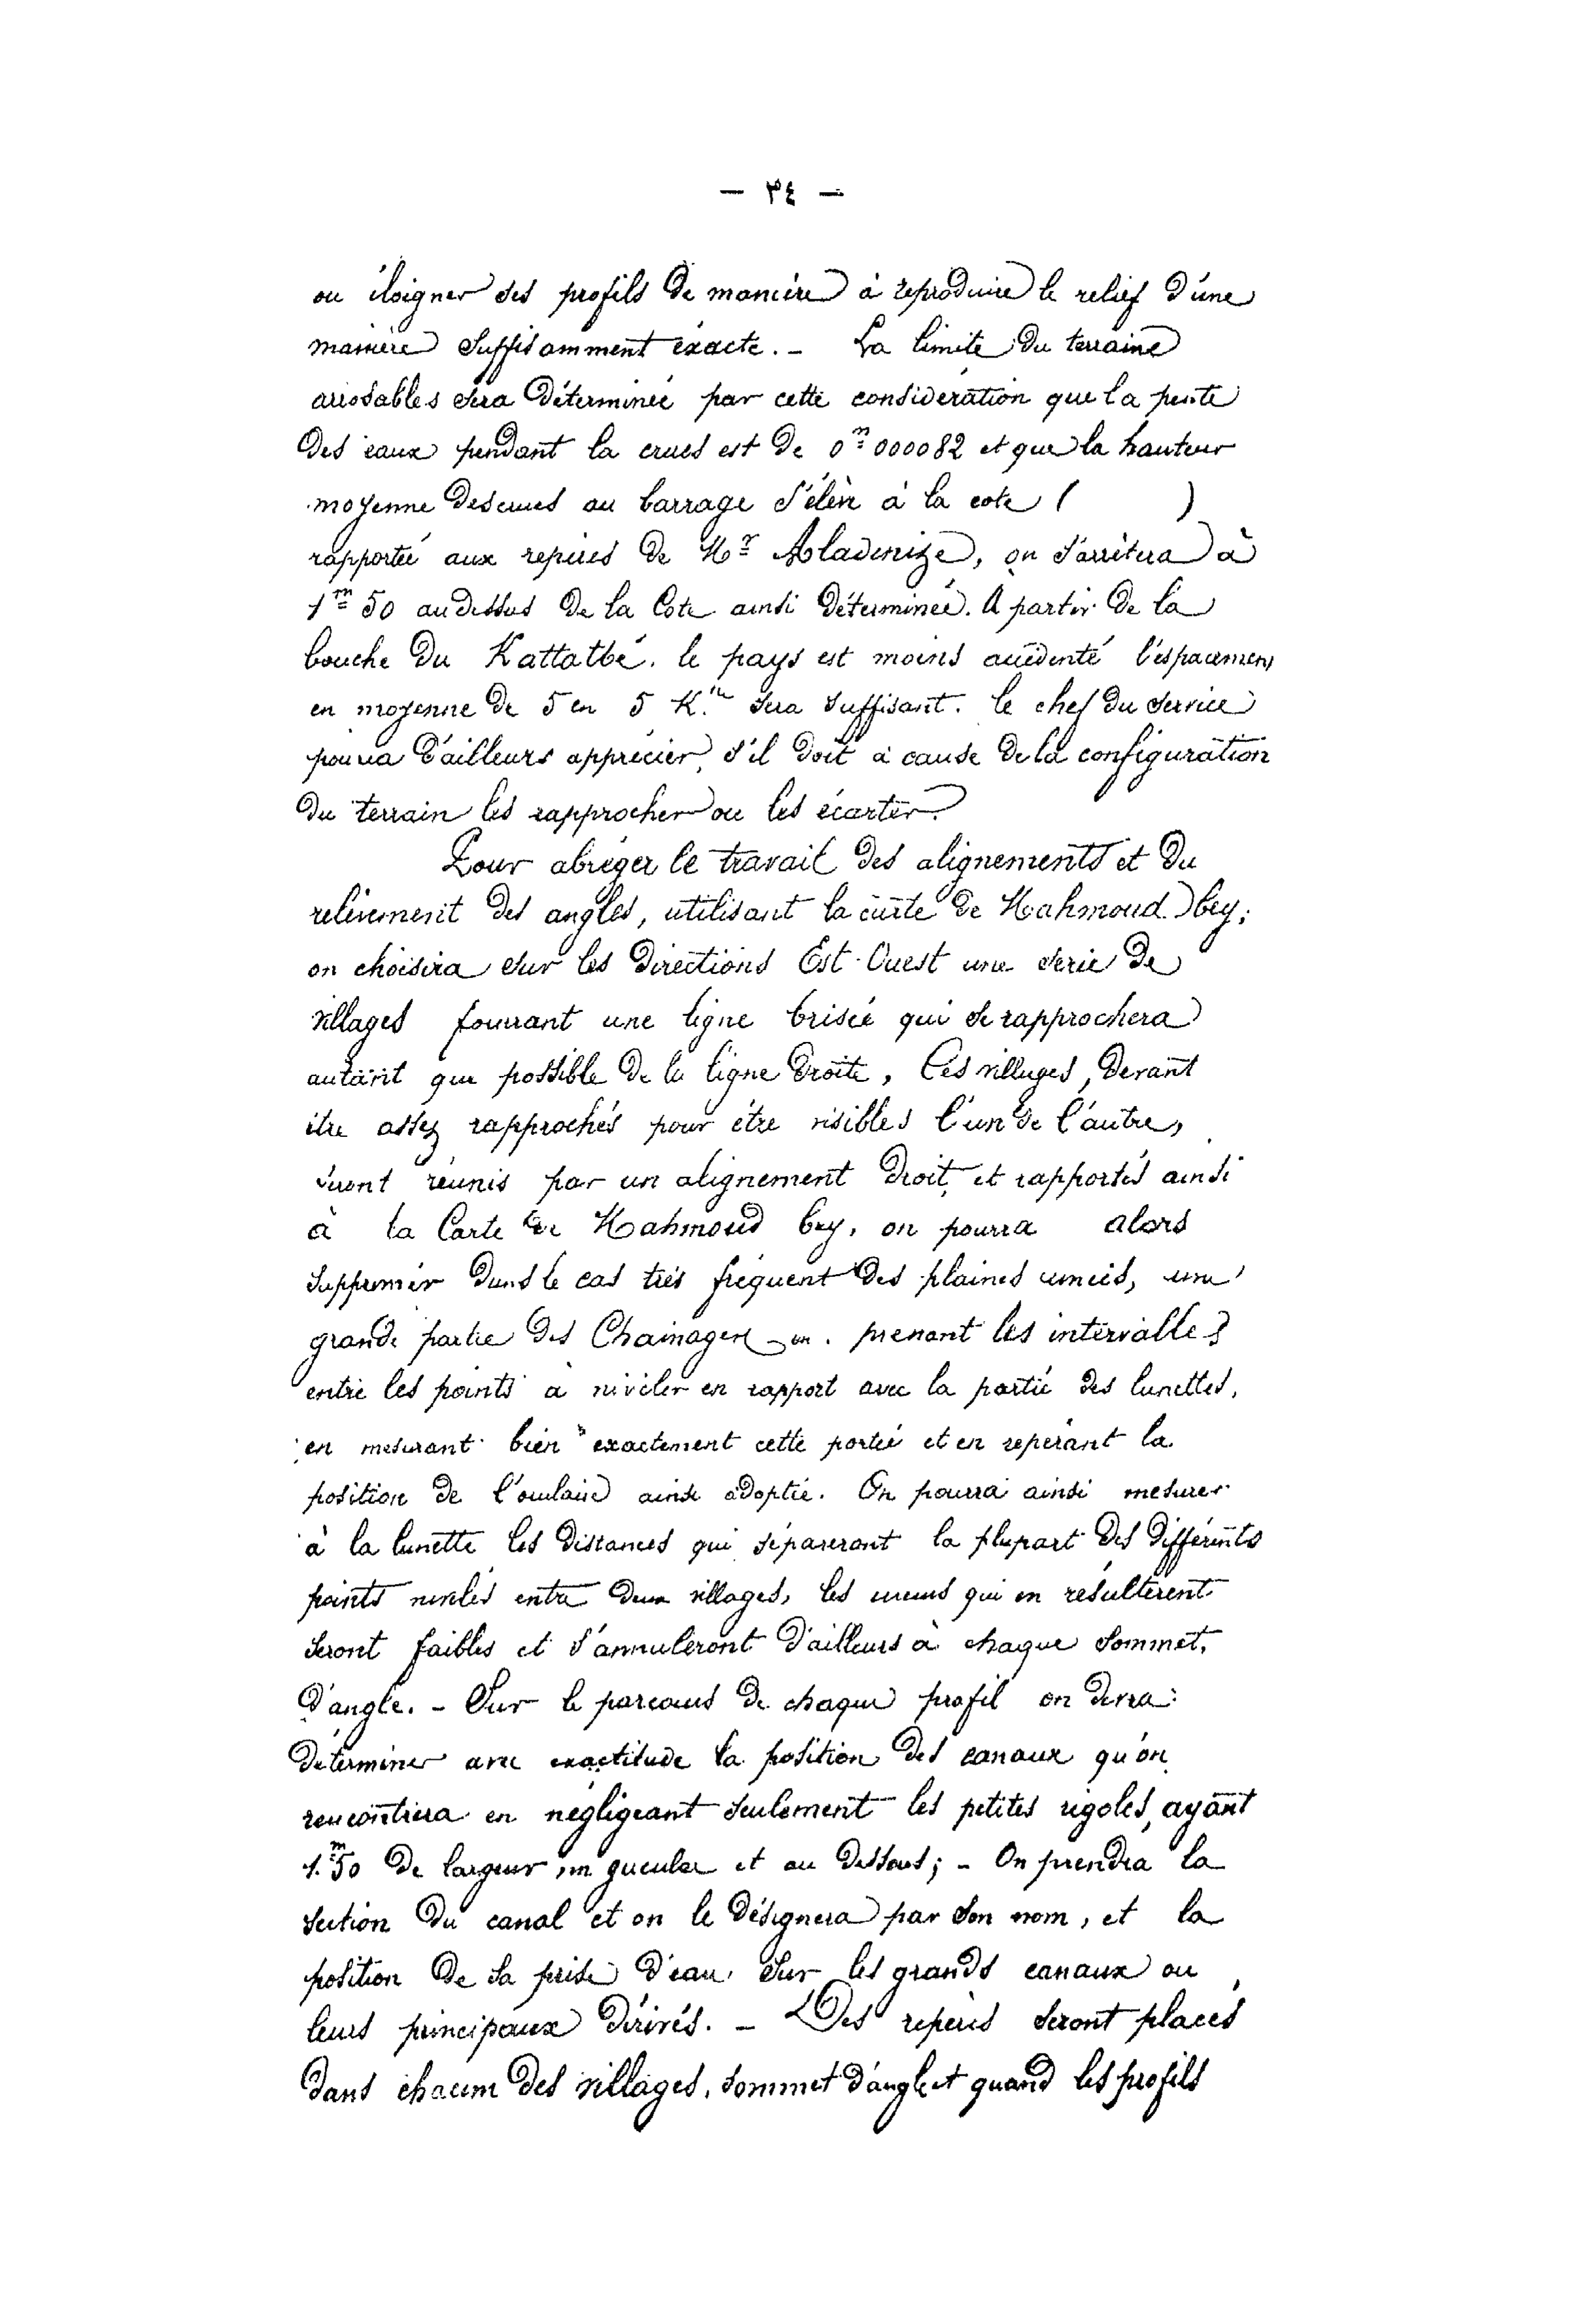 — ٣٤ —
ou éloigner ses profils de manière à reproduire le relief d'une
manière suffisamment exacte. — La limite du terraine
arrosables sera déterminée par cette considération que la pente
des eaux pendant la crues est de 0m 000082 et que la hauteur
moyenne des crues au barrage s'élève à la cote (          )
rapportée aux repères de Mr on s'arrêtera à
1m 50 au dessus de la Cote ainsi déterminée. A partir de la
bouche du Kattatbé. le pays est moins accidenté l'espacement
en moyenne de 5 en 5 K. sera suffisant. le chef du service
pourra d'ailleurs apprécier, s'il doit à cause de la configuration
du terrain les rapprocher ou les écarter.
Pour abréger le travail des alignements et du
relèvement des angles, utilisant la carte de Mahmoud bey;
on choisira sur les directions Est-Ouest une serie de
villages fourrant une ligne brisée qui se rapprochera
autant que possible de la ligne droite, Ces villages, devant
être assez rapprochés pour être visibles l'un de l'autre,
seront réunis par un alignement droit, et rapportés ainsi
à la Carte de Mahmoud bey, on pourra alors
supprimer dans le cas très fréquent des plaines unies, une
grande partie des Chainages en. prenant les intervalles
entre les points à niveler en rapport avec la portée des lunettes,
en mesurant bien exactement cette portée et en repérant la
position de l'oculaire ainsi adoptée. On pourra ainsi mesurer
à la lunette les distances qui sépareront la plupart des différents
points nivelés entre deux villages, les erreurs qui en résulterent
seront faibles et s'annuleront d'ailleurs à chaque sommet,
d'angle. — Sur le parcours de chaque profil on devra
déterminer avec exactitude la position des canaux qu'on
rencontrera en négligeant seulement les petites rigoles, ayant
1.m50 de largeur en gueule et au dessous; — On prendra la
section du canal et on le désignera par son nom, et la
position de sa prise d'eau, sur les grands canaux ou
leurs principaux dérivés. — Des repères seront placés
dans chacun des villages, sommet d'angle et quand les profils